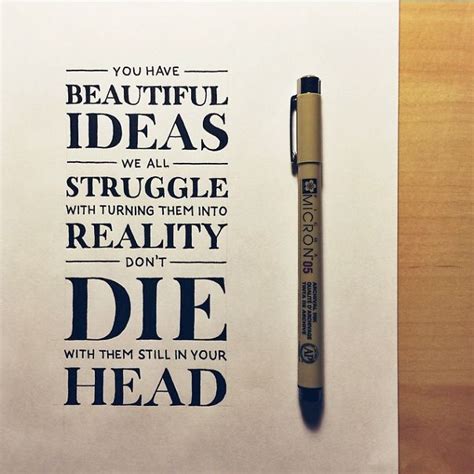 YOU HAVE
BEAUTIFUL
IDEAS
WE ALL
STRUGGLE
WITH TURNING THEM INTO
REALITY
DON'T
DIE
WITH THEM STILL IN YOUR
HEAD
MICRON 05
ARCHIVAL INK
QUALITÉ D'ARCHIVAGE
TINTA DE ARCHIVO
AP